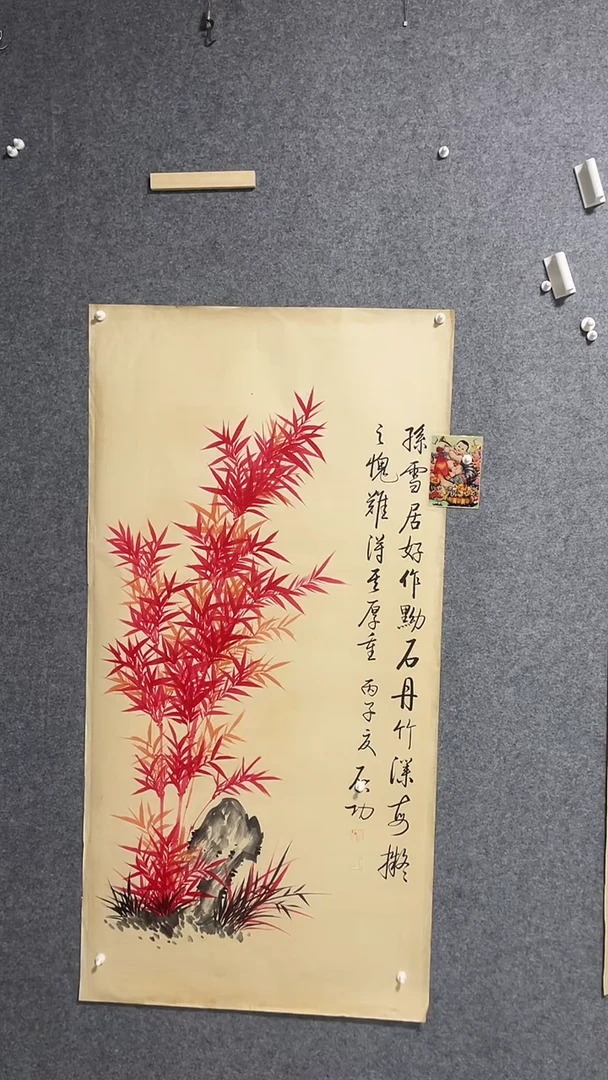 孫雪居好作黝石丹竹每擬
之愧難得其厚重 丙子夏 启功